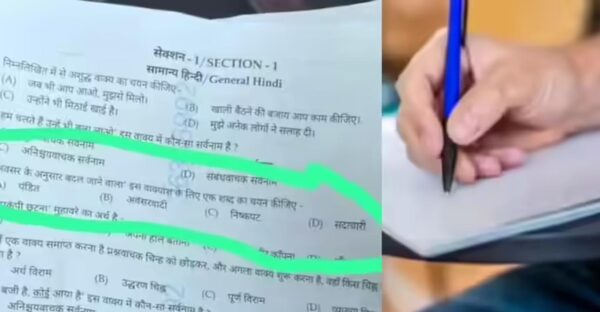 सेक्शन - 1/SECTION - 1
सामान्य हिन्दी/General Hindi
निम्नलिखित में से अशुद्ध वाक्य का चयन कीजिए -
(A) जब भी आप आओ, मुझसे मिलो। (B) खाली बैठने की बजाय आप काम कीजिए।
(C) उन्होंने भी मिठाई खाई है। (D) मुझे अनेक लोगों ने सलाह दी।
चलते हैं उन्हें भी इस वाक्य में कौन-सा सर्वनाम है ?
सर्वनाम
अनिश्चयवाचक सर्वनाम (D) संबंधवाचक सर्वनाम
के अनुसार बदल जाने वाला' इस वाक्यांश के लिए एक शब्द का चयन कीजिए -
पंडित (B) अवसरवादी (C) निष्कपट (D) सदाचारी
छूटना' मुहावरे का अर्थ है -
एक वाक्य समाप्त करना है प्रश्नवाचक चिन्ह को छोड़कर, और अगला वाक्य शुरू करना है, वहाँ किस चिह्न
है ?
अर्ध विराम (B) उद्धरण चिह्न (C) पूर्ण विराम (D)
बजी है, कोई आया है' इस वाक्य में कौन-सा सर्वनाम है -
अनिश्चयवाचक सर्वनाम